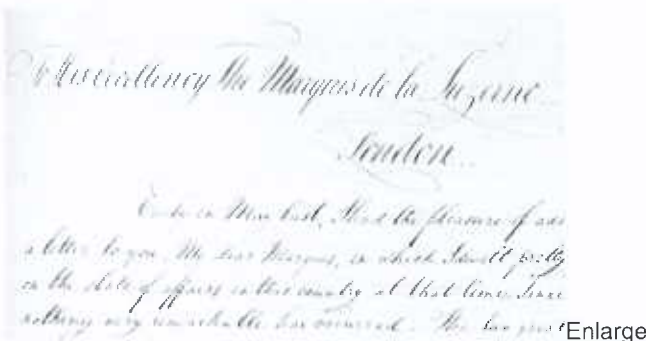 His Excellency the Marquis de la Luzerne
London
in last, I had the pleasure of
a letter to you, My dear Marquis, in which I
on the state of affairs in this country at that time. Since
nothing very remarkable has occurred. has just
Enlarge